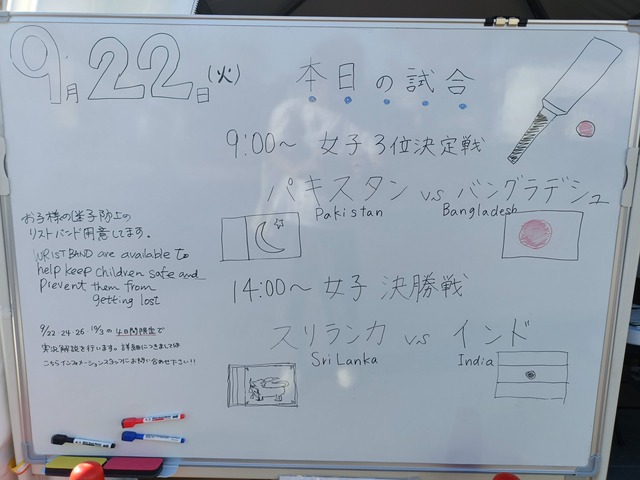 9月22日(火)
本日の試合
9:00〜 女子3位決定戦
パキスタン vs バングラデシュ
Pakistan Bangladesh
14:00〜 女子 決勝戦
スリランカ vs インド
Sri Lanka India
お子様の迷子防止の
リストバンド用意してます。
WRISTBAND are available to
help keep children safe and
Prevent them from
getting lost
9/22・24・26・10/3の4日間限定で
実況解説を行います。詳細につきましては
こちらインフォメーションスタッフにお問い合わせ下さい!!